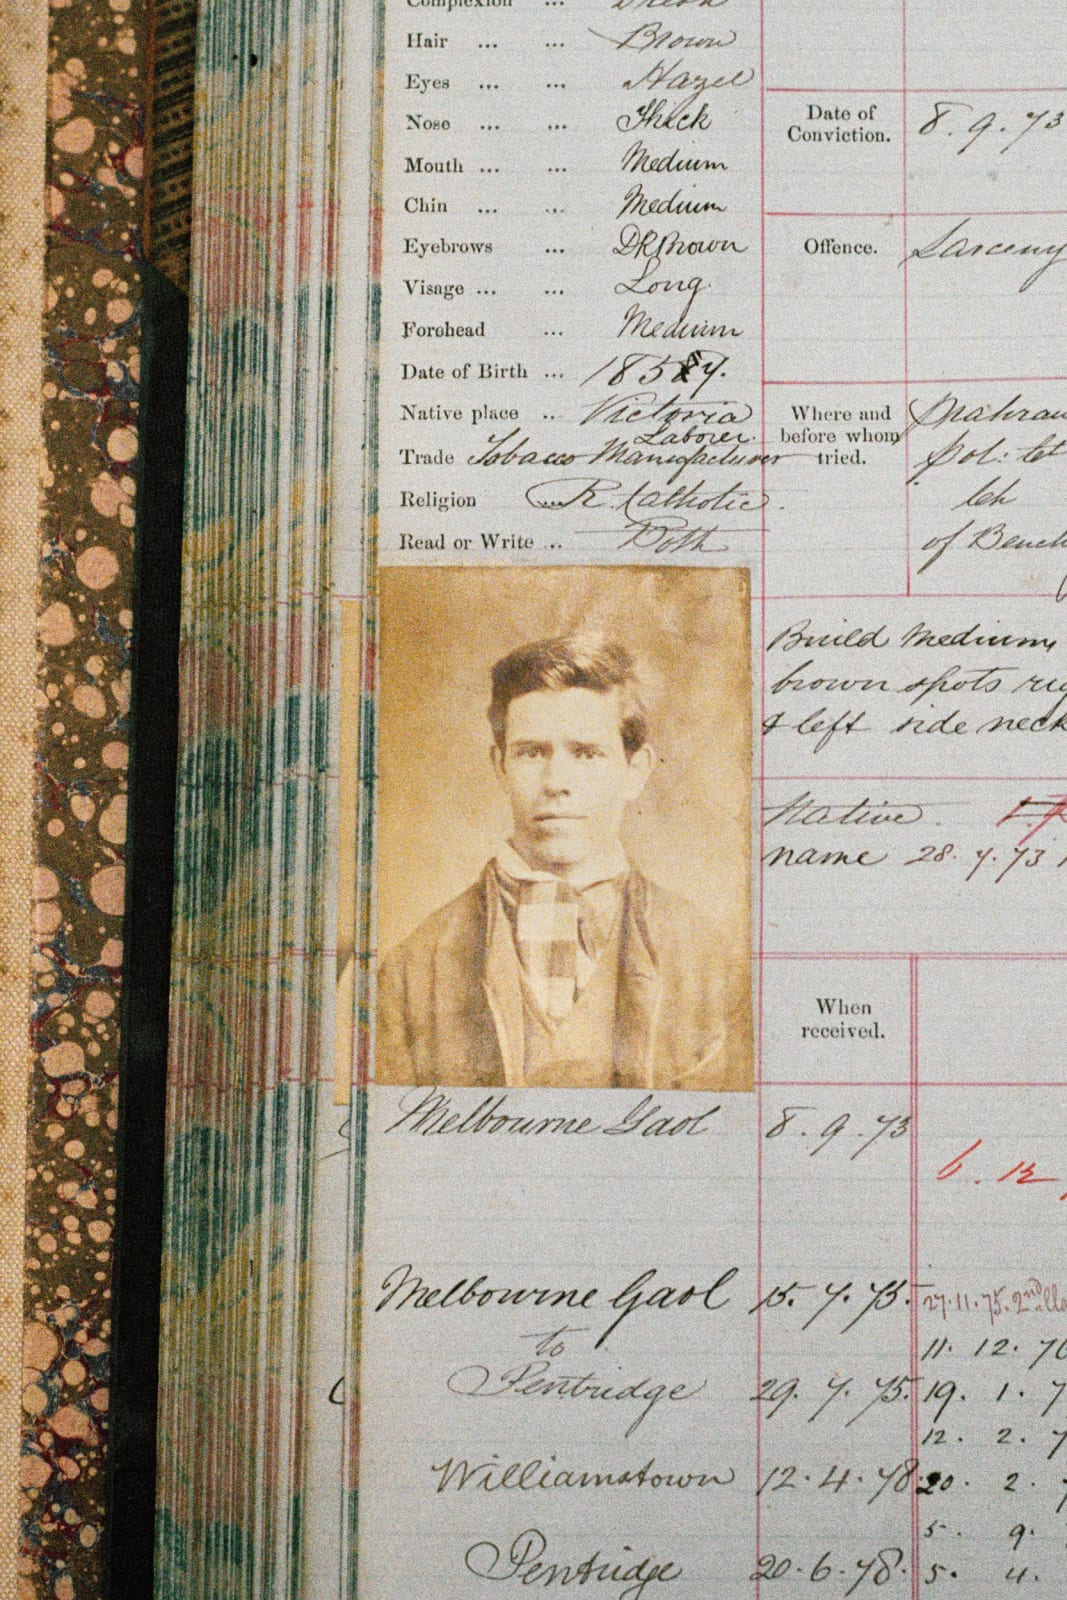 Complexion ... Fresh
Hair ... ... Brown
Eyes ... ... Hazel
Nose ... ... Thick
Mouth ... ... Medium
Chin ... ... Medium
Eyebrows ... DKBrown
Visage ... ... Long.
Forehead ... Medium
Date of Birth ...
Native place .. Victoria
Laborer.
Trade Tobacco Manufacturer
Religion R. Catholic
Read or Write ... Both
Date of
Conviction.
8. 9. 73
Offence.
Larceny
Where and
before whom
tried.
pol:
of Bench
Build Medium,
brown spots
& left side neck
Native
name 28. 7. 73
When
received.
Melbourne Gaol 8. 9. 73
6. 12
Melbourne Gaol 15. 7. 75. 27.11.75. 2nd
11. 12. 76
to
Pentridge 29. 7. 75. 19. 1. 7
12. 2. 7
Williamstown 12. 4. 78. 20. 2. 7
5. 9.
Pentridge 20. 6. 78. 5. 4.